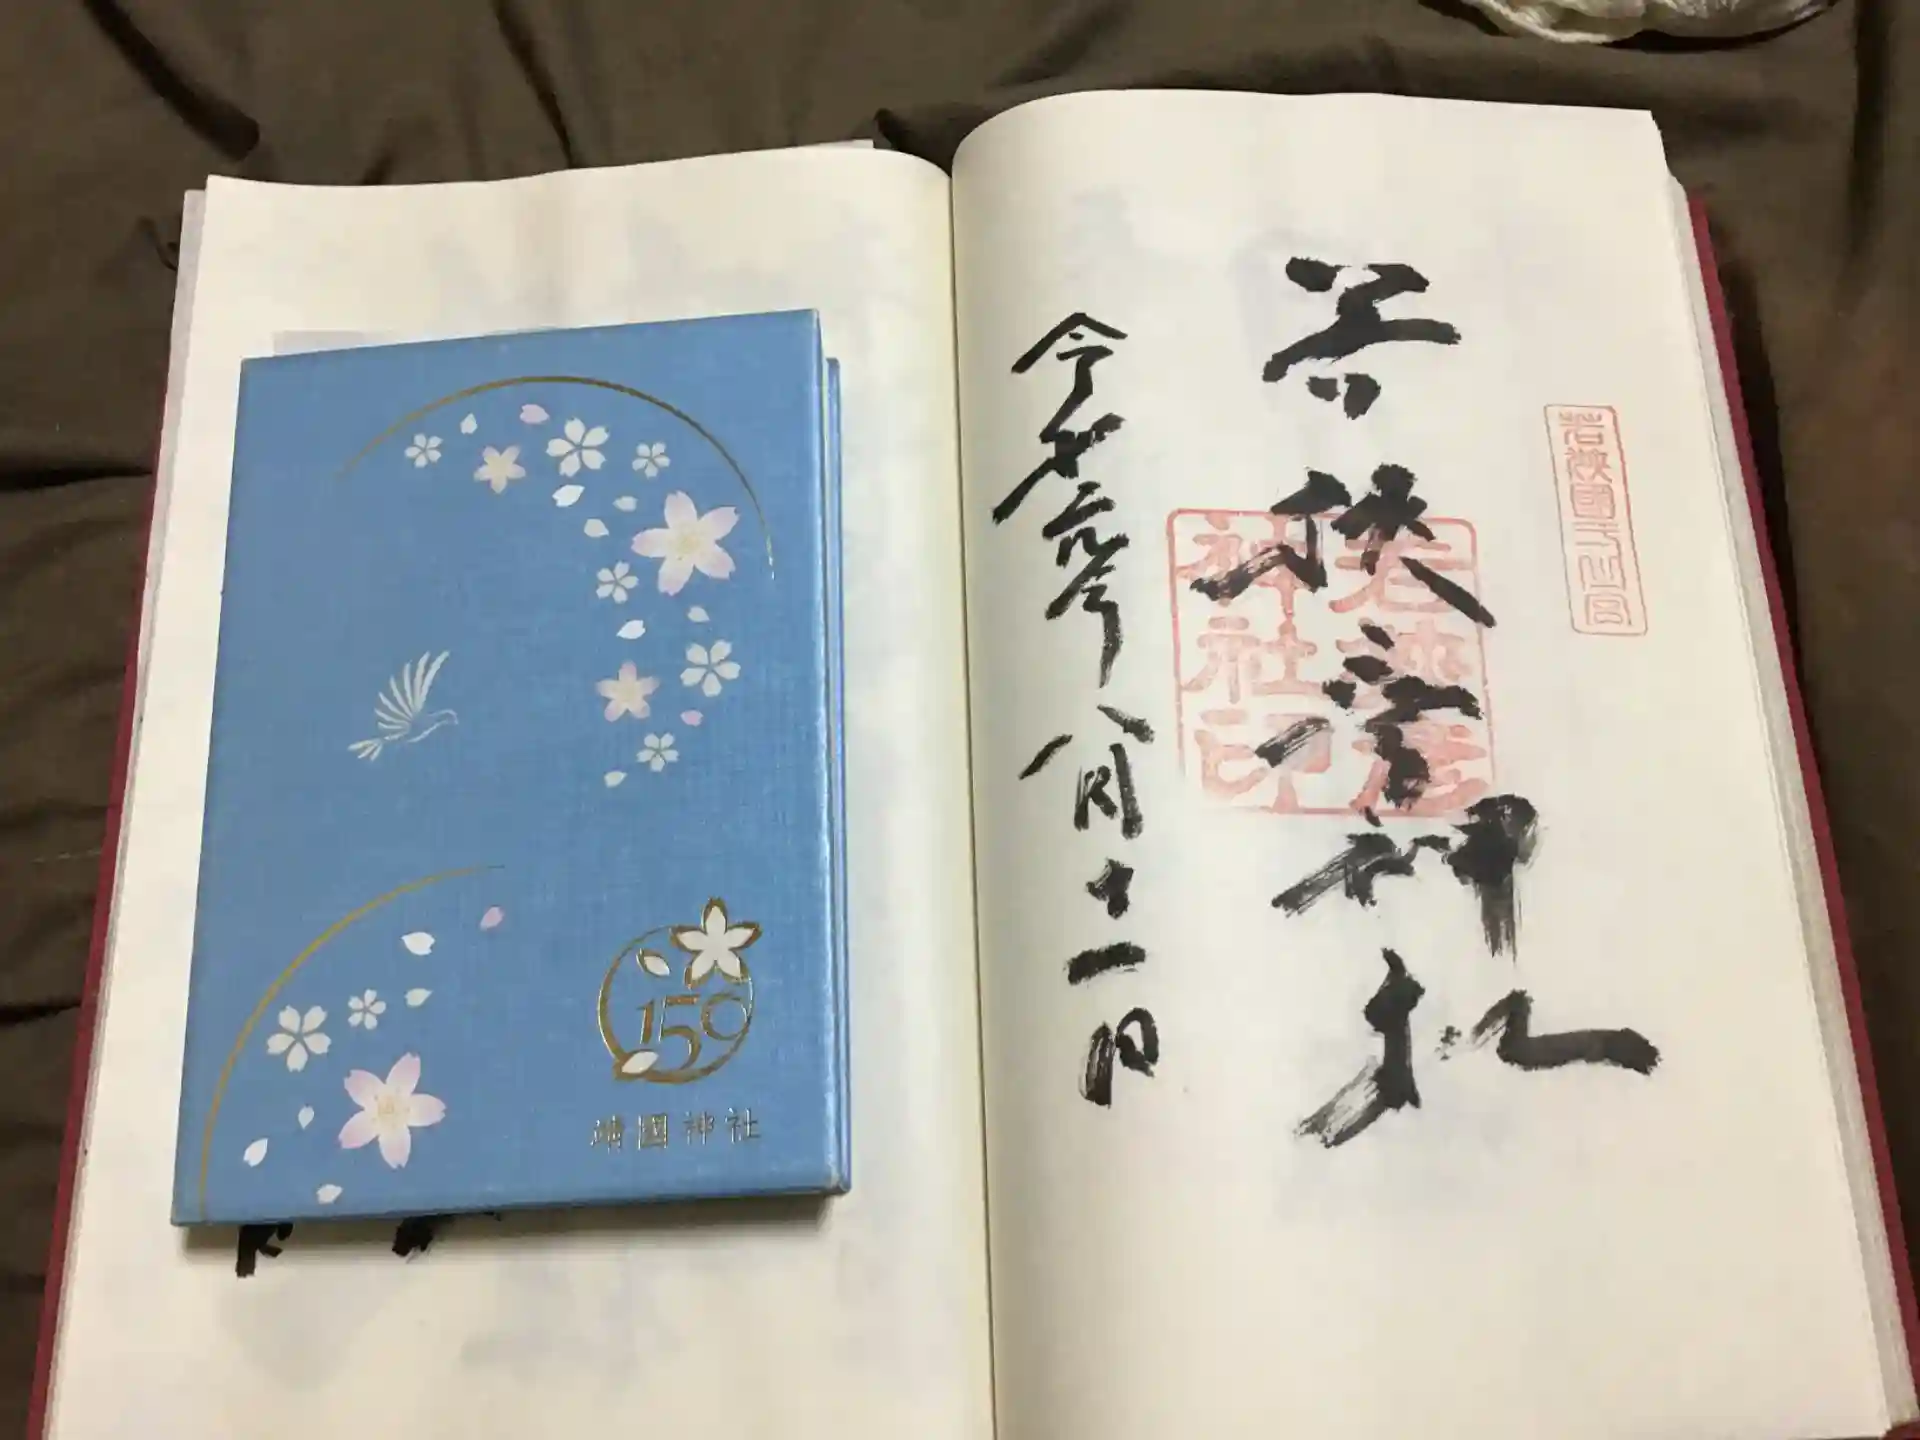 若狹國一之宮
若狭彦神社
若狹彦
神社印
令和元年八月十一日
150
靖國神社